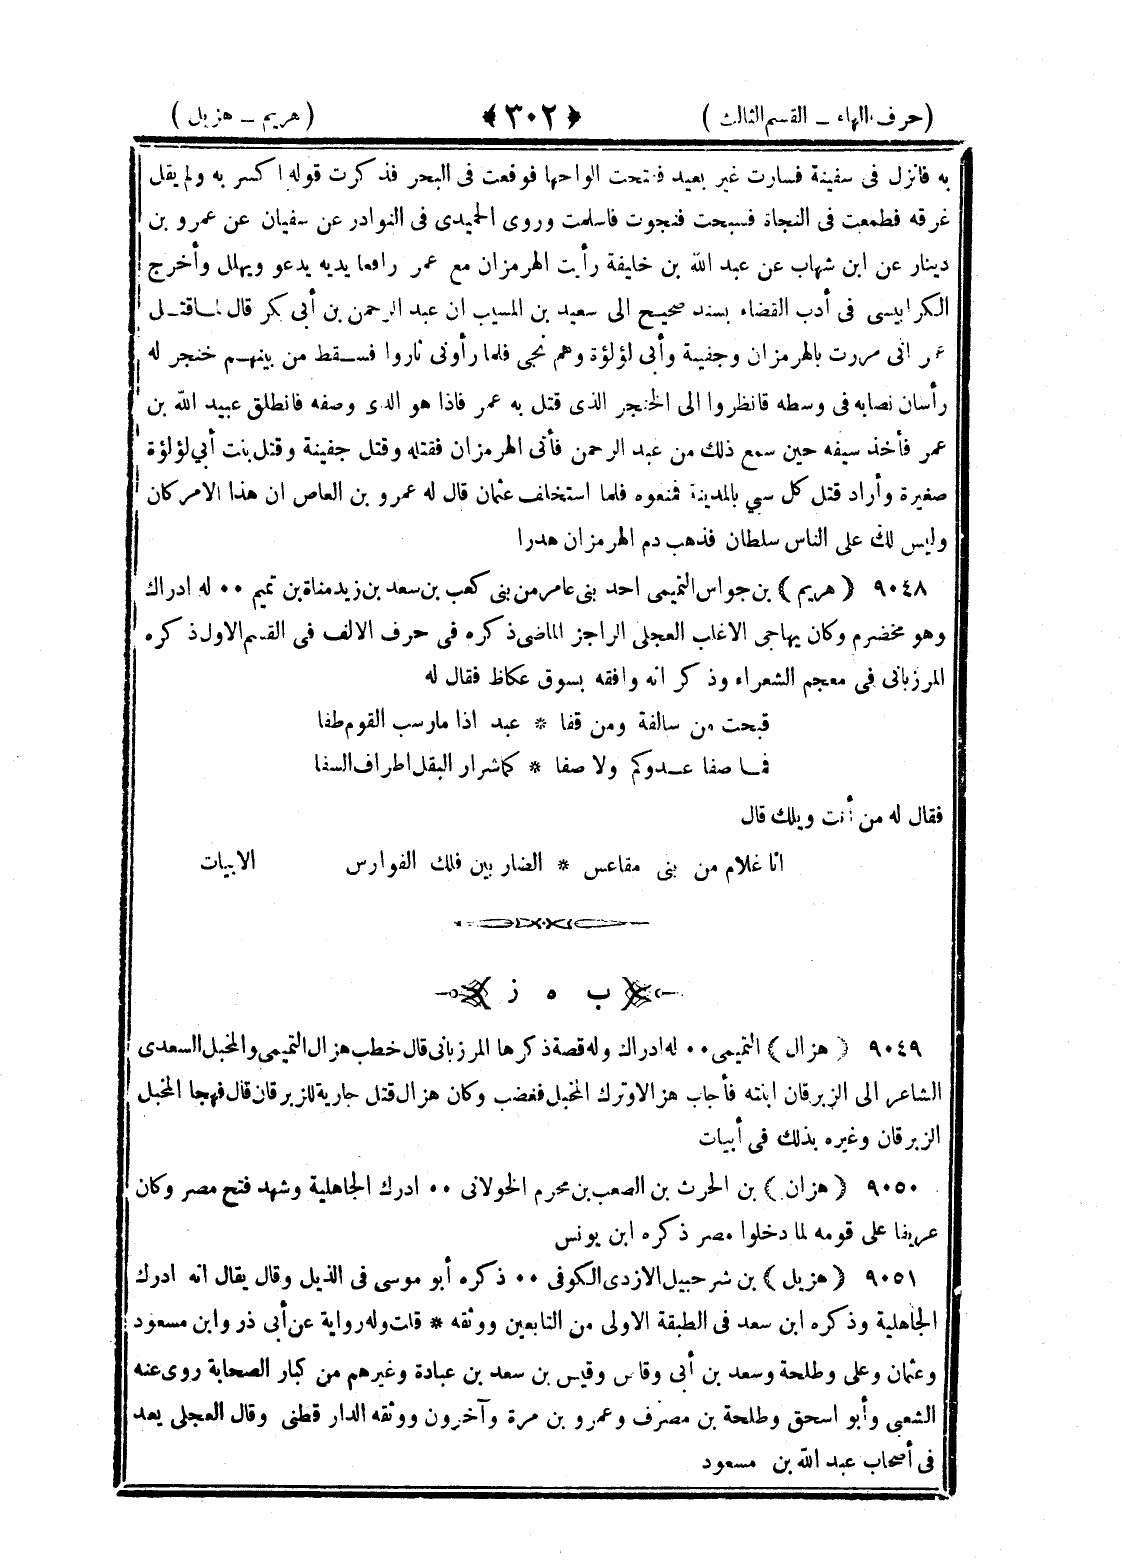 (حرف الهاء – القسم الثالث) ﴿٣٠٢﴾ (هريم – هزيل)
به فانزل فى سفينة فسارت غير بعيد ففتحت الواحها فوقعت فى البحر فذكرت قوله اكسر به ولم يقل
غرقه فطمعت فى النجاة فسبحت فنجوت فاسلمت وروى الحميدى فى النوادر عن سفيان عن عمرو بن
دينار عن ابن شهاب عن عبد الله بن خليفة رأيت الهرمزان مع عمر رافعا يديه يدعو ويهلل وأخرج
الكرابيسى فى أدب القضاء بسند صحيح الى سعيد بن المسيب ان عبد الرحمن بن أبى بكر قال لما قتل
عمر انى مررت بالهرمزان وجفينة وأبى لؤلؤة وهم نجى فلما رأونى ثاروا فسقط من بينهم خنجر له
رأسان نصابه فى وسطه فانظروا الى الخنجر الذى قتل به عمر فاذا هو الذى وصفه فانطلق عبيد الله بن
عمر فأخذ سيفه حين سمع ذلك من عبد الرحمن فأتى الهرمزان فقتله وقتل جفينة وقتل بنت أبي لؤلؤة
صغيرة وأراد قتل كل سبي بالمدينة فمنعوه فلما استخلف عثمان قال له عمرو بن العاص ان هذا الامر كان
وليس لك على الناس سلطان فذهب دم الهرمزان هدرا
٩٠٤٨ ﴿هريم﴾ بن جواس التميمى احد بنى عامر من بنى كعب بن سعد بن زيد مناة بن تميم ٠٠ له ادراك
وهو مخضرم وكان يهاجى الاغلب العجلى الراجز الماضى ذكره فى حرف الالف فى القسم الاول ذكره
المرزبانى فى معجم الشعراء وذكر انه وافقه بسوق عكاظ فقال له
قبحت من سالفة ومن قفا * عبد اذا مارسب القوم طفا
فما صفا عدوكم ولا صفا * كما شرار البقل اطراف السفا
فقال له من أنت ويلك قال
انا غلام من بنى مقاعس * الضاربين فلك الفوارس الابيات
ب ه ز
٩٠٤٩ ﴿هزال﴾ التميمى ٠٠ له ادراك وله قصة ذكرها المرزبانى قال خطب هزال التميمى والمخبل السعدى
الشاعر الى الزبرقان ابنته فأجاب هزالا وترك المخبل فغضب وكان هزال قتل جارية للزبرقان قال فهجا المخبل
الزبرقان وغيره بذلك فى أبيات
٩٠٥٠ ﴿هزان﴾ بن الحرث بن الصعب بن محرم الخولانى ٠٠ ادرك الجاهلية وشهد فتح مصر وكان
عريفا على قومه لما دخلوا مصر ذكره ابن يونس
٩٠٥١ ﴿هزيل﴾ بن شرحبيل الازدى الكوفى ٠٠ ذكره أبو موسى فى الذيل وقال يقال انه ادرك
الجاهلية وذكره ابن سعد فى الطبقة الاولى من التابعين ووثقه * قلت وله رواية عن أبى ذر وابن مسعود
وعثمان وعلى وطلحة وسعد بن أبى وقاس وقيس بن سعد بن عبادة وغيرهم من كبار الصحابة روى عنه
الشعبى وأبو اسحق وطلحة بن مصرف وعمرو بن مرة وآخرون ووثقه الدار قطنى وقال العجلى يعد
فى أصحاب عبد الله بن مسعود